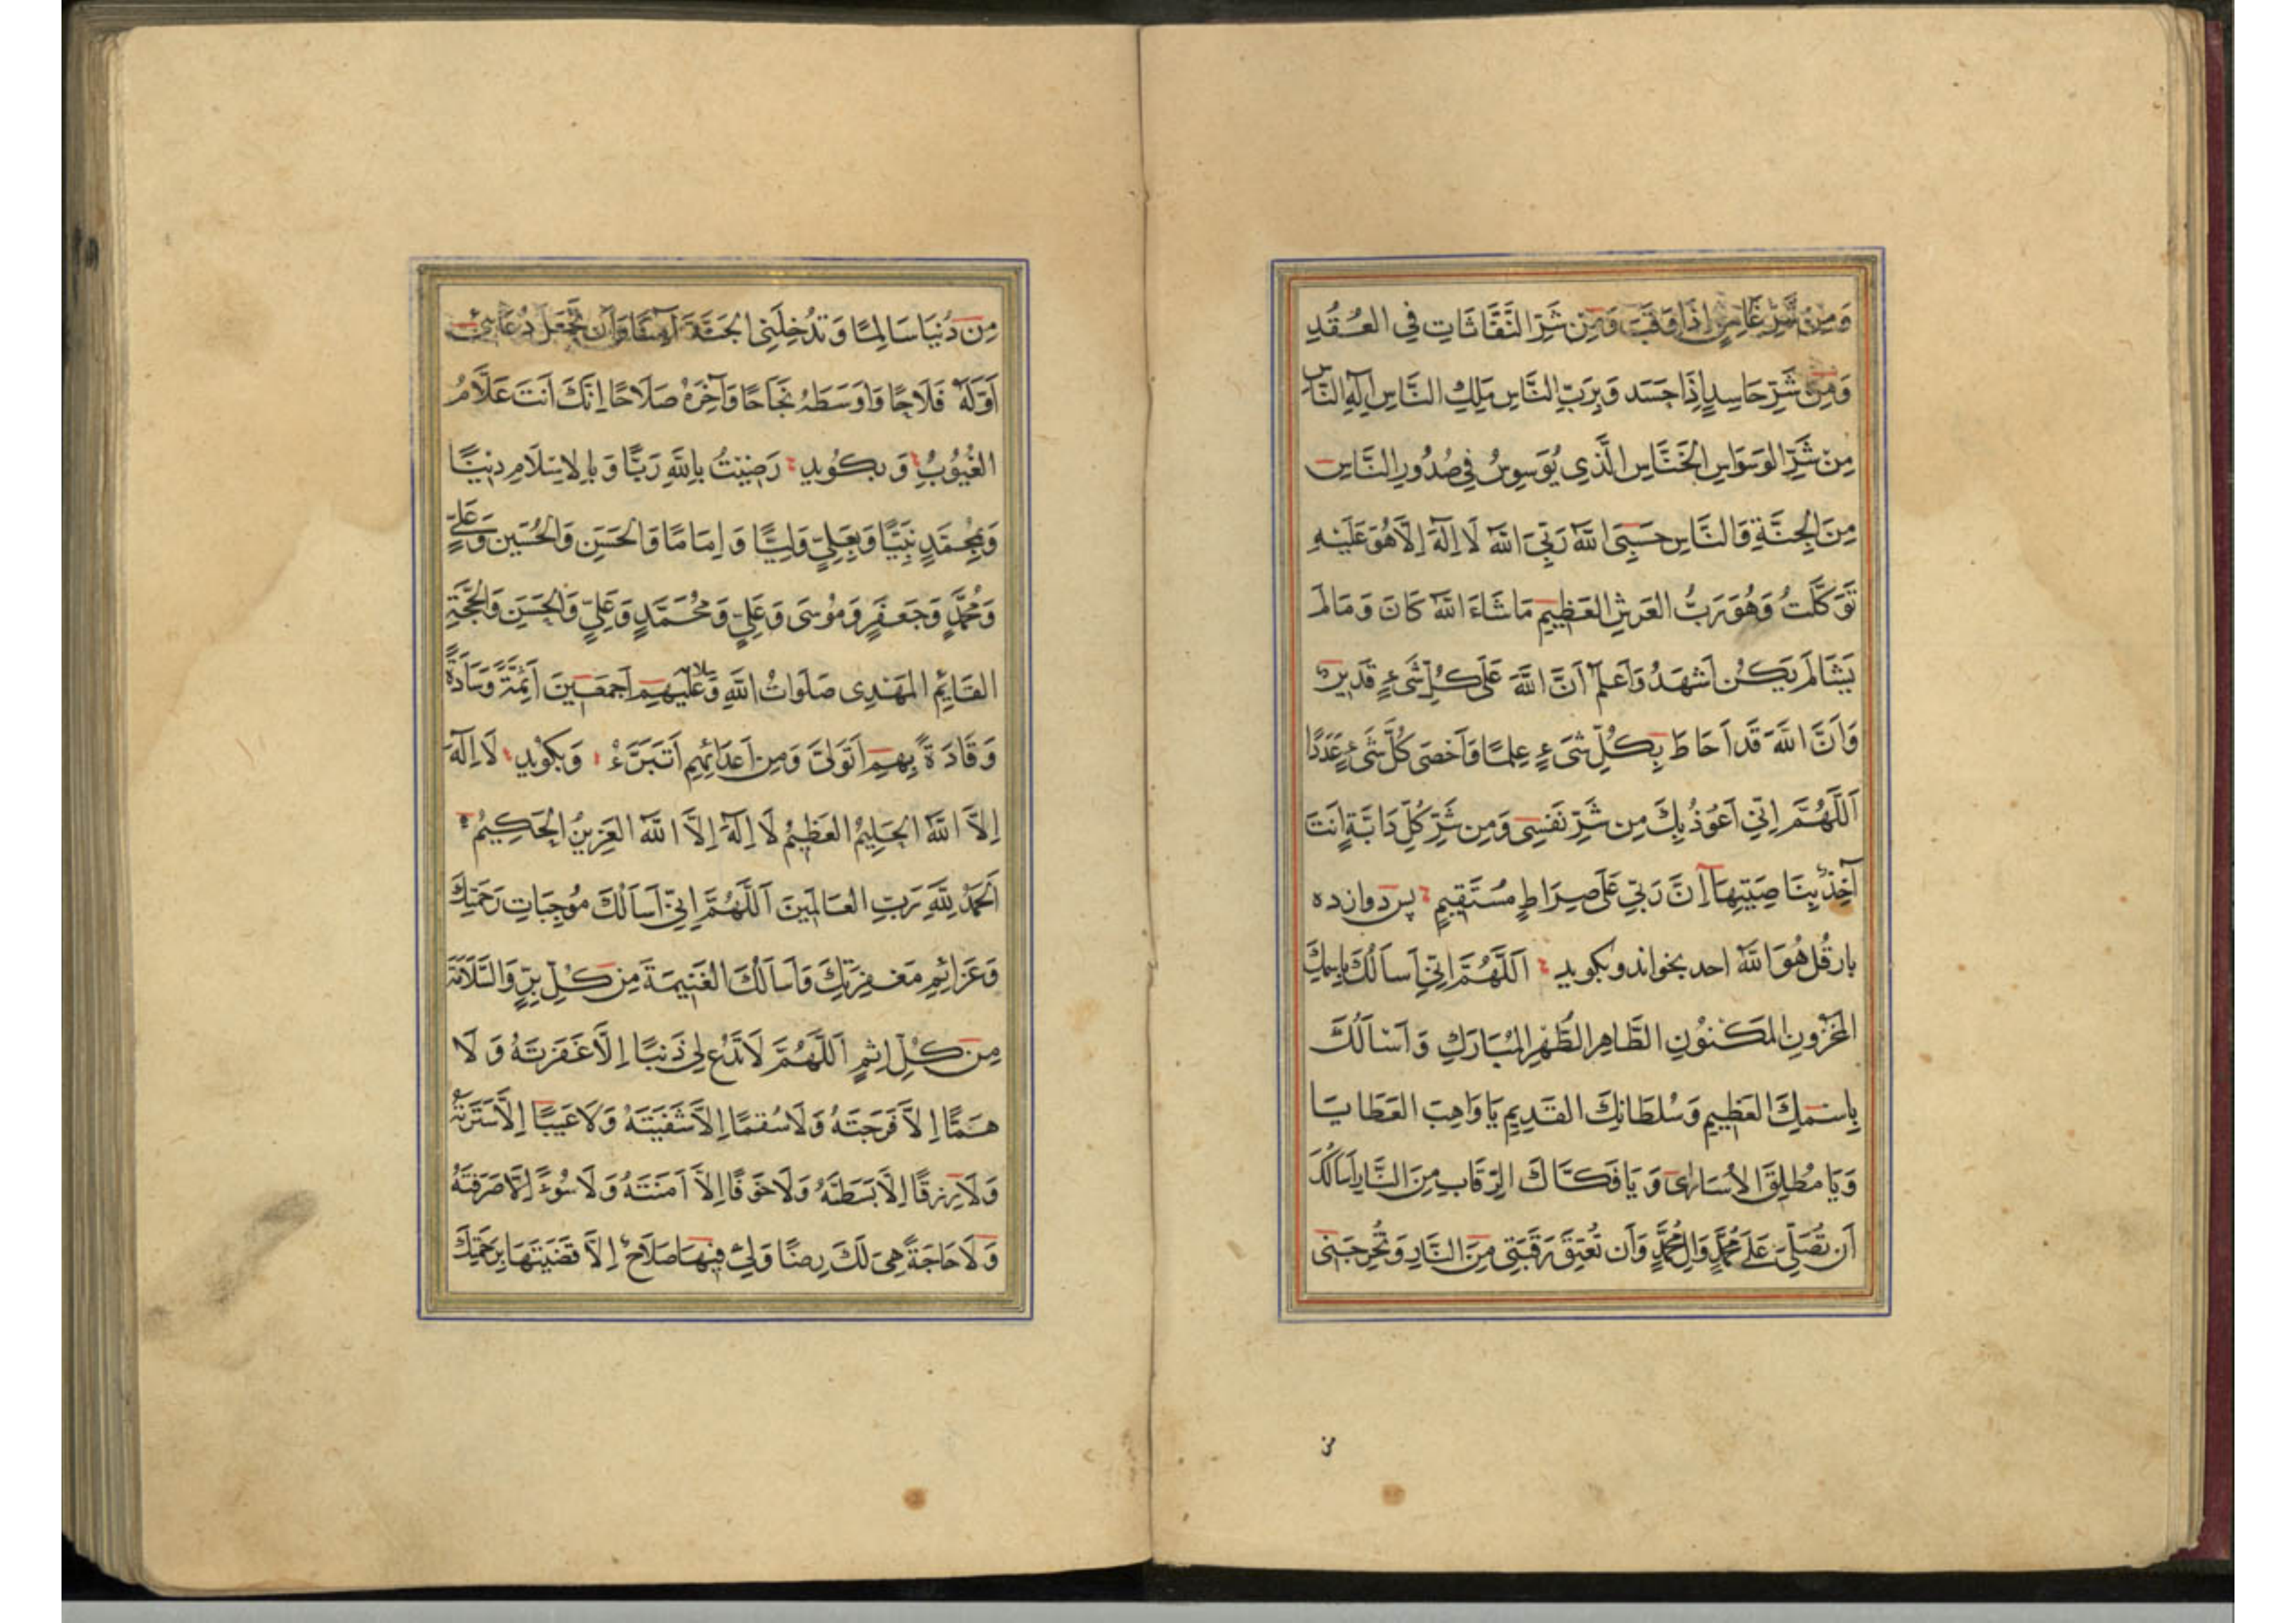 وَمِنْ شَرِّ غَاسِقٍ اِذَا وَقَبَ وَمِنْ شَرِّ النَّفَّاثَاتِ فِي العُقَدِ
وَمِنْ شَرِّ حَاسِدٍ اِذَا حَسَد وَبِرَبِّ النَّاسِ مَلِكِ النَّاسِ اِلَهِ النَّاسِ
مِنْ شَرِّ الوَسَوَاسِ الخَنَّاسِ الَّذِي يُوَسوِسُ فِي صُدُورِ النَّاسِ
مِنَ الجِنَّةِ وَالنَّاسِ حَسبِيَ اللهُ رَبِّيَ اللهُ لَا اِلَهَ اِلَّا هُوَ عَلَيْهِ
تَوَكَّلْتُ وَهُوَ رَبُّ العَرشِ العَظِيمِ مَا شَاءَ اللهُ كَانَ وَمَا لَم
يَشَا لَم يَكُن اَشهَدُ وَاَعلَمُ اَنَّ اللهَ عَلَى كُلِّ شَىءٍ قَدِيرٌ
وَاَنَّ اللهَ قَد اَحَاطَ بِكُلِّ شَىءٍ عِلمًا وَاَحصَى كُلَّ شَىءٍ عَدَدًا
اَللَّهُمَّ اِنِّي اَعُوذُ بِكَ مِن شَرِّ نَفسِي وَمِن شَرِّ كُلِّ دَابَّةٍ اَنتَ
آخِذٌ بِنَاصِيَتِهَا اِنَّ رَبِّي عَلَى صِرَاطٍ مُسْتَقِيمٍ پس دوازده
بار قُل هُوَ اللهُ احد بخواند و بکوید اَللَّهُمَّ اِنِّي اَسأَلُكَ بِاسمِكَ
المَخزُونِ المَكنُونِ الطَّاهِرِ الطُّهرِ المُبَارَكِ وَاَسْأَلُكَ
بِاسمِكَ العَظِيمِ وَسُلطَانِكَ القَدِيمِ يَا وَاهِبَ العَطَايَا
وَيَا مُطلِقَ الاُسَارَى وَيَا فَكَّاكَ الرِّقَابِ مِنَ النَّارِ اَسأَلُكَ
اَن تُصَلِّيَ عَلَى مُحَمَّدٍ وَالِ مُحَمَّدٍ وَاَن تُعتِقَ رَقَبَتِي مِنَ النَّارِ وَتُخرِجَنِي
من
مِن دُنيَا سَالِمًا وَتُدخِلَنِي الجَنَّةَ آمِنًا وَاَن تَجعَلَ دُعَائِي
اَوَّلَهُ فَلَاحًا وَاَوسَطَهُ نَجَاحًا وَآخِرَهُ صَلَاحًا اِنَّكَ اَنتَ عَلَّامُ
الغُيُوبِ وَ بکوید رَضِيتُ بِاللهِ رَبًّا وَبِالاِسلَامِ دِينًا
وَبِمُحَمَّدٍ نَبِيًّا وَبِعَلِيٍّ وَلِيًّا وَاِمَامًا وَالحَسَنِ وَالحُسَينِ وَعَلِيٍّ
وَمُحَمَّدٍ وَجَعفَرٍ وَمُوسَى وَعَلِيٍّ وَمُحَمَّدٍ وَعَلِيٍّ وَالحَسَنِ وَالحُجَّةِ
القَائِمِ المَهدِى صَلَوَاتُ اللهِ وَسلامه عَلَيهِم اَجمَعِينَ اَئِمَّةً وَسَادَةً
وَقَادَةً بِهِم اَتَوَلَّى وَمِن اَعدَائِهِم اَتَبَرَّءُ وَبکوید لَا اِلَهَ
اِلَّا اللهُ الحَلِيمُ العَظِيمُ لَا اِلَهَ اِلَّا اللهُ العَزِيزُ الحَكِيمُ
اَلحَمدُ لِلَّهِ رَبِّ العَالَمِينَ اَللَّهُمَّ اِنِّي اَسأَلُكَ مُوجِبَاتِ رَحمَتِكَ
وَعَزَائِمِ مَغفِرَتِكَ وَاَسأَلُكَ الغَنِيمَةَ مِن كُلِّ بِرٍّ وَالسَّلَامَةَ
مِن كُلِّ اِثمٍ اَللَّهُمَّ لَا تَدَع لِي ذَنبًا اِلَّا غَفَرتَهُ وَلَا
هَمًّا اِلَّا فَرَجتَهُ وَلَا سُقمًا اِلَّا شَفَيتَهُ وَلَا عَيبًا اِلَّا سَتَرتَهُ
وَلَا رِزقًا اِلَّا بَسَطتَهُ وَلَا خَوفًا اِلَّا آمَنتَهُ وَلَا سُوءً اِلَّا صَرَفتَهُ
وَلَا حَاجَةً هِىَ لَكَ رِضًا وَلِيَ فِيهَا صَلَاحٌ اِلَّا قَضَيتَهَا بِرَحمَتِكَ